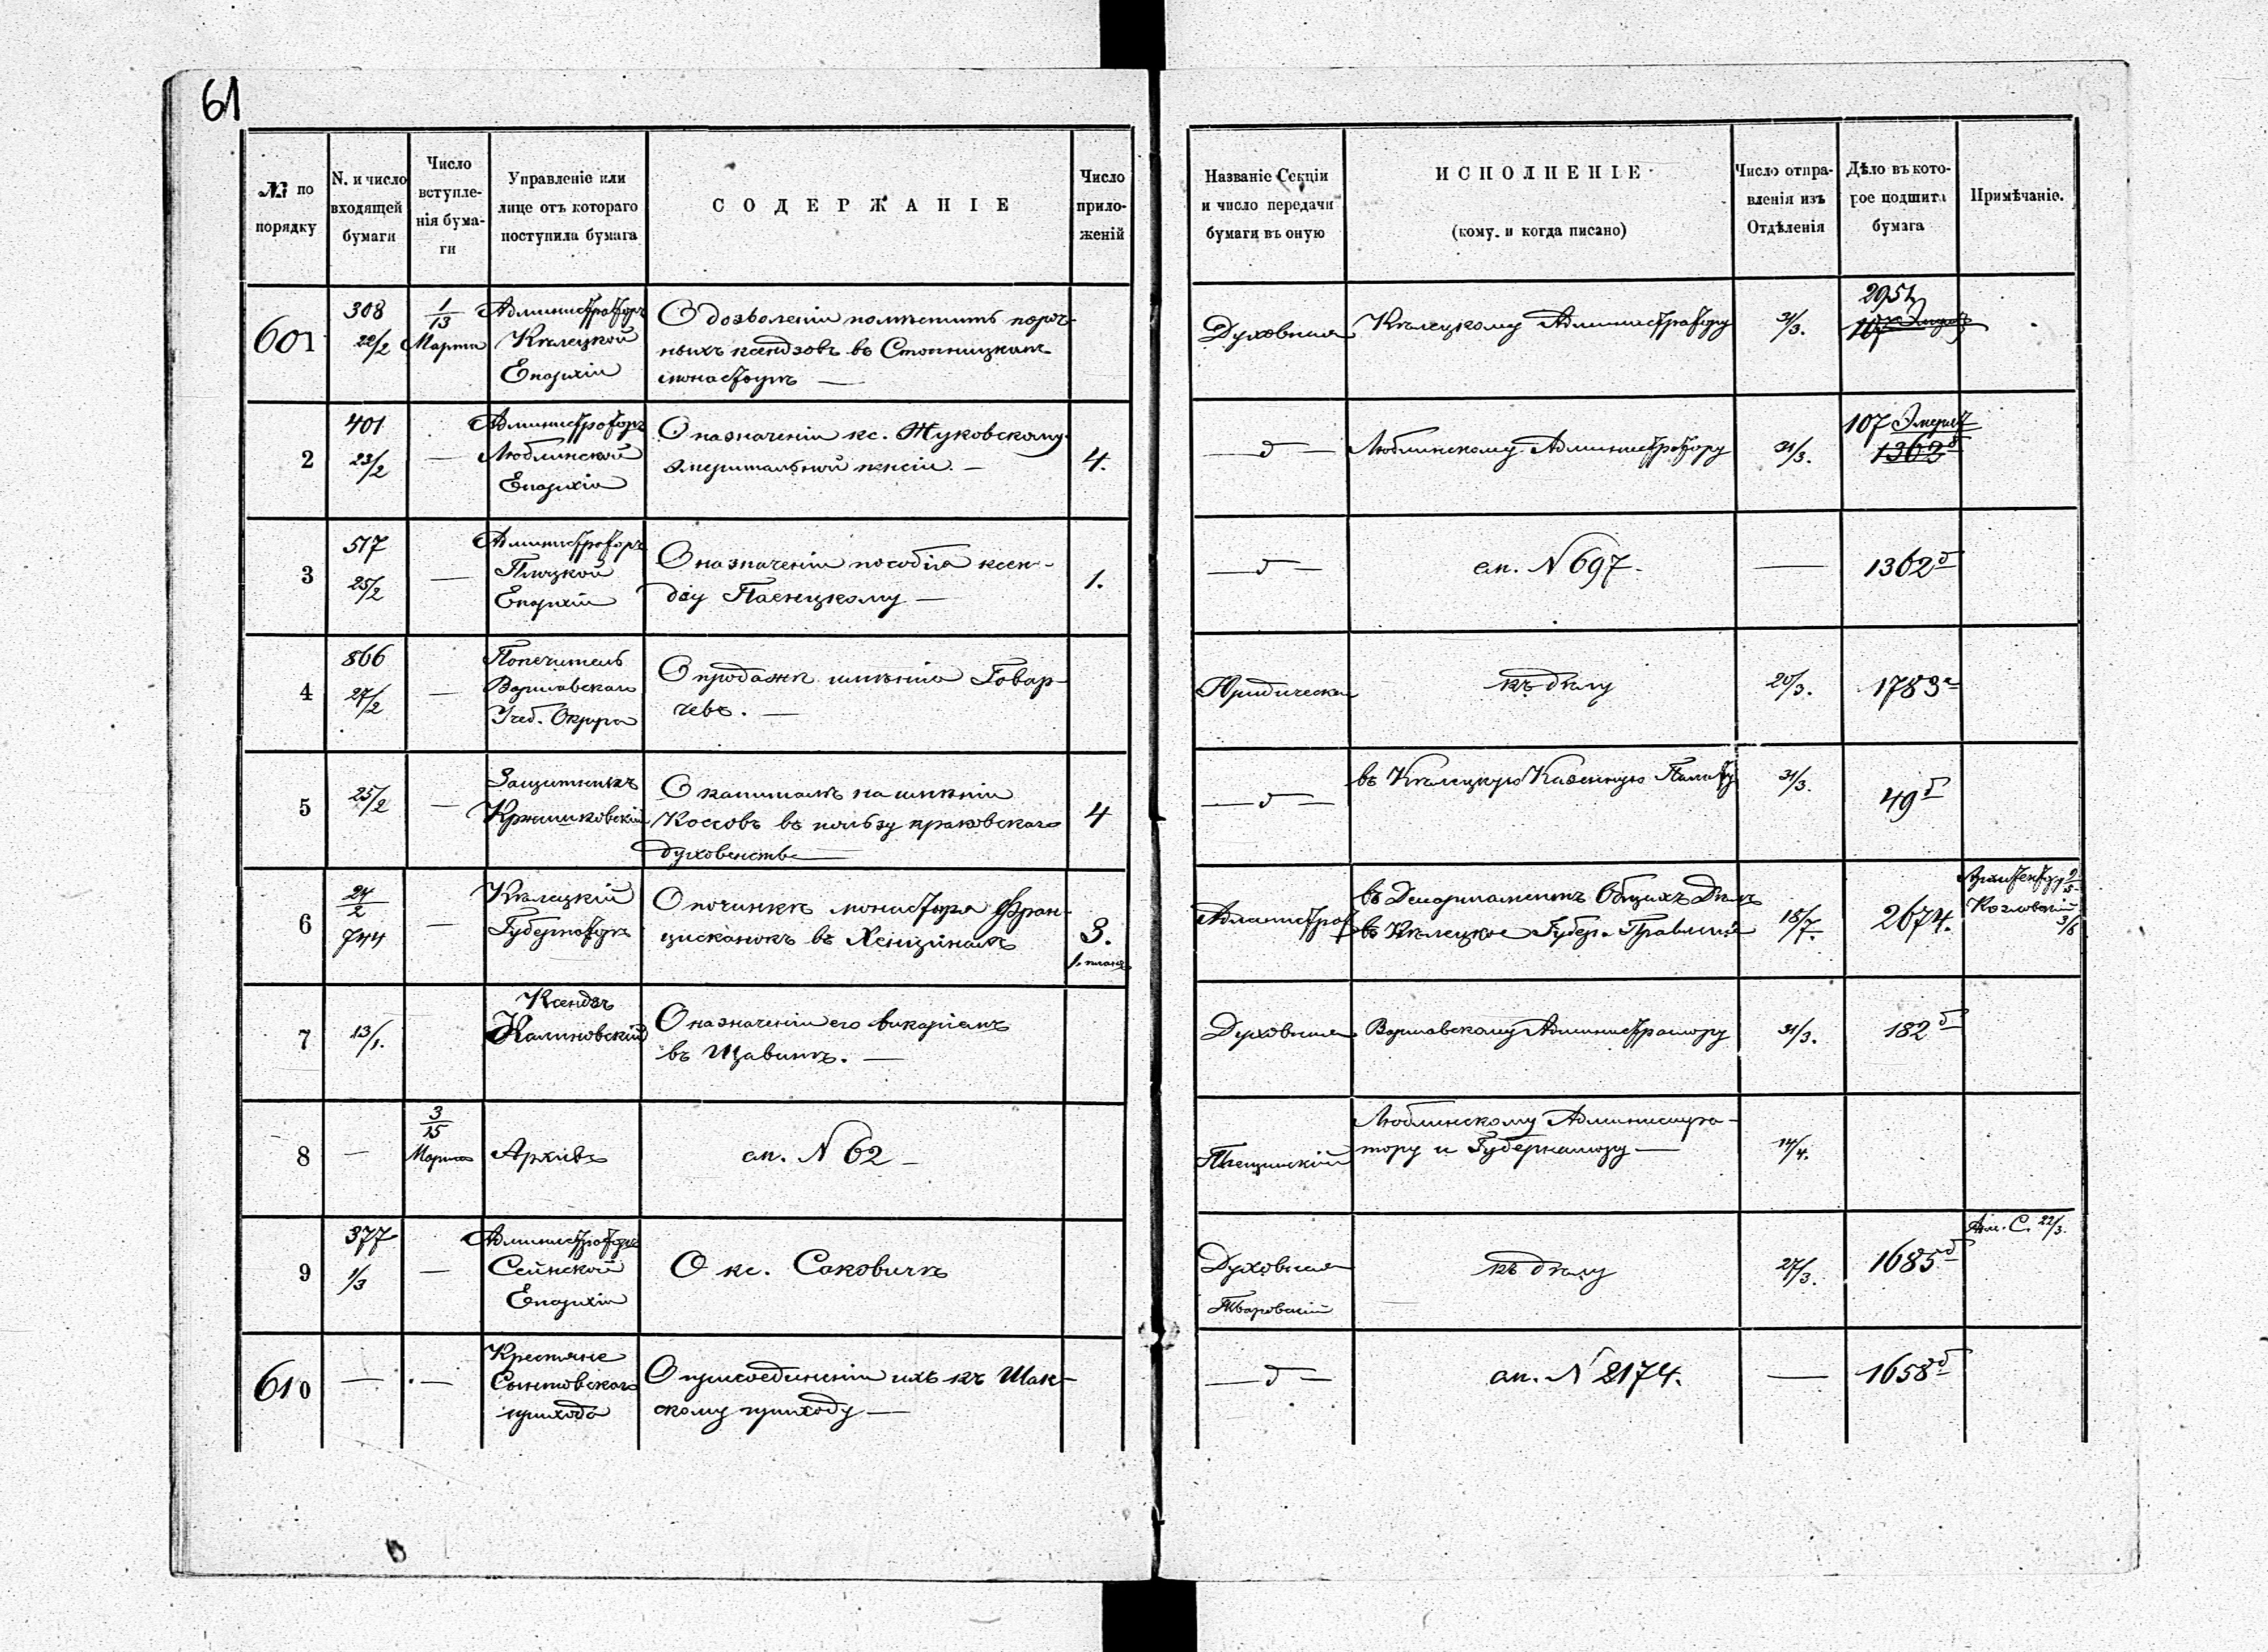 61
№ по порядку
N. и число входящей бумаги
Число вступле-нія бума-ги
Управленіе или лице отъ котораго поступила бумага
СОДЕРЖАНІЕ
Число прило-женій
Названіе Секціи и число передачи бумаги въ оную
ИСПОЛНЕНІЕ
(кому и когда писано)
Число отпра-вленія изъ Отдѣленія
Дѣло въ кото-рое подшита бумага
Примѣчаніе.
601
308
22/2
1/13 Марта
Администраторъ
Кѣлецкой
Епархіи
О дозволеніи помѣстить пороч-
ныхъ ксендзовъ въ Стопницкомъ
монастырѣ —
Духовная
Кѣлецкому Администратору
31/3.
2951
2
401
23/2
—
Администраторъ
Люблинской
Епархіи
О назначеніи кс. Жуковскому
эмеритальной пенсіи. —
4.
— д —
Люблинскому Администратору
31/3.
107 Эмерит
1363 б
3
517
25/2
—
Администраторъ
Плоцкой
Епархіи
О назначеніи пособія ксен-
дзу —
1.
— д —
ап. N 697.
—
1362 б
4
866
27/2
—
Попечитель
Варшавскаго
Учеб. Округа
О продажѣ имѣнія Говар-
чевъ. —
Юридическая
къ дѣлу
20/3.
1783 а
5
25/2
—
Защитникъ
О капиталѣ на имѣніи
Коссовъ въ пользу краковскаго
духовенства —
4
— д —
въ Кѣлецкую Казенную Палату
31/3.
49 б
6
24/2
744
—
Кѣлецкій
Губернаторъ
О починкѣ монастыря Фран-
цисканокъ въ Хенцинахъ
3.
1. планъ
Администрат
въ Департаментъ Общихъ Дѣлъ
въ Кѣлецкое Губер. Правленіе
18/7.
2674.
Козловскій
3/6
7
13/1.
Ксендзъ
Калиновскій
О назначеніи его викаріемъ
въ Щавинѣ. —
Духовная
Варшавскому Администратору
31/3.
182 б
8
—
3/15
Марта
Архивъ
ап. N 62 —
Люблинскому Администра-
тору и Губернатору —
14/4.
9
377
1/3
—
Администраторъ
Сейнской
Епархіи
О кс. Саковичѣ
Духовная
къ дѣлу
27/3.
1685 б
22/3.
610
—
—
Крестьяне
прихода
О присоединеніи ихъ къ Шак-
скому приходу —
— д —
ап. N 2174.
—
1658 б